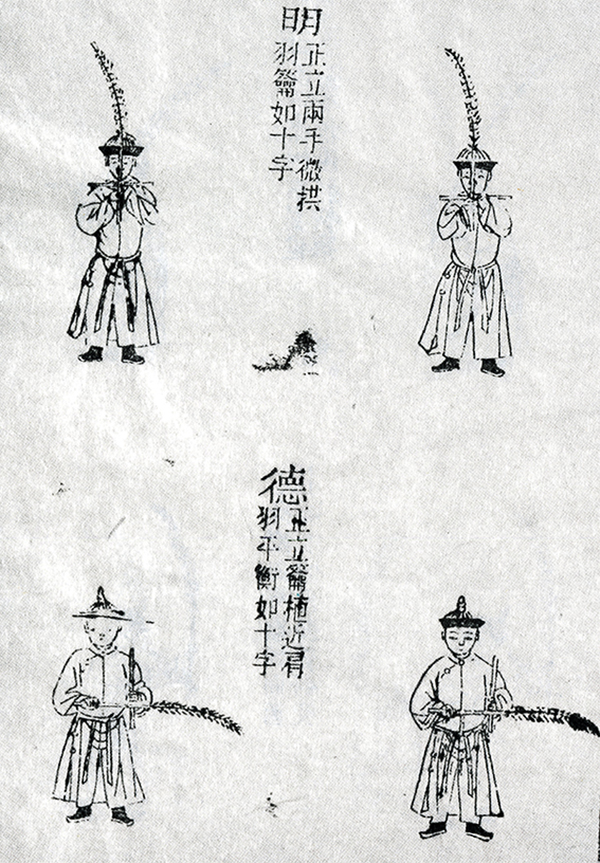 明
正立兩手微拱
羽籥如十字
德
正立籥植近肩
羽平衡如十字